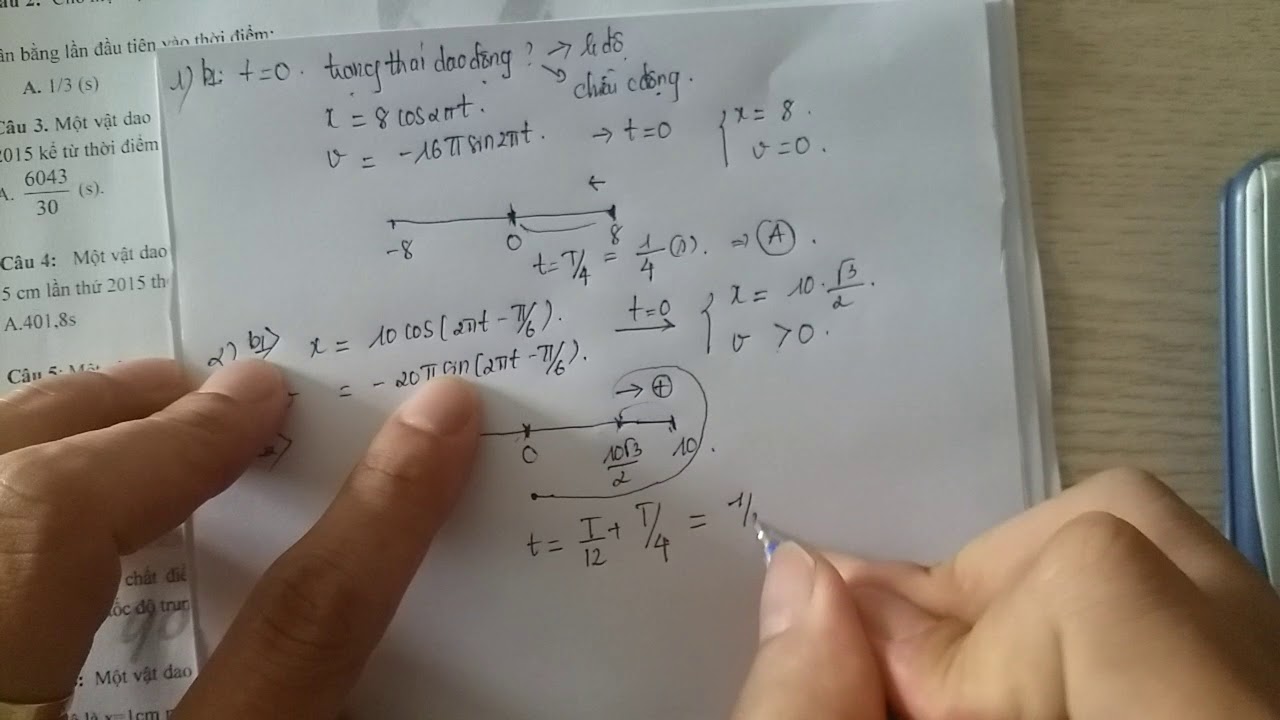 ân bằng lần đầu tiên vào thời điểm:
A. 1/3 (s)
Câu 3. Một vật dao
2015 kể từ thời điểm
A. 6043/30 (s).
Câu 4: Một vật dao
5 cm lần thứ 2015 th
A.401,8s
Câu 5: Một
chất điể
tốc độ trun
: Một vật dao
là x=1cm
1) b1: t=0. trạng thái dao động? → li độ
↘ chiều c động.
x = 8 cos2πt.
v = -16π sin2πt. → t=0 { x = 8.
v = 0.
←
-8 0 8
t = T/4 = 1/4 (s). ⇒ (A).
2) b1> x = 10 cos(2πt - π/6). t=0 → { x = 10.√3/2.
= - 20π sin(2πt - π/6). v > 0.
→ ⊕
0 10√3/2 10.
t = T/12 + T/4 = 1/